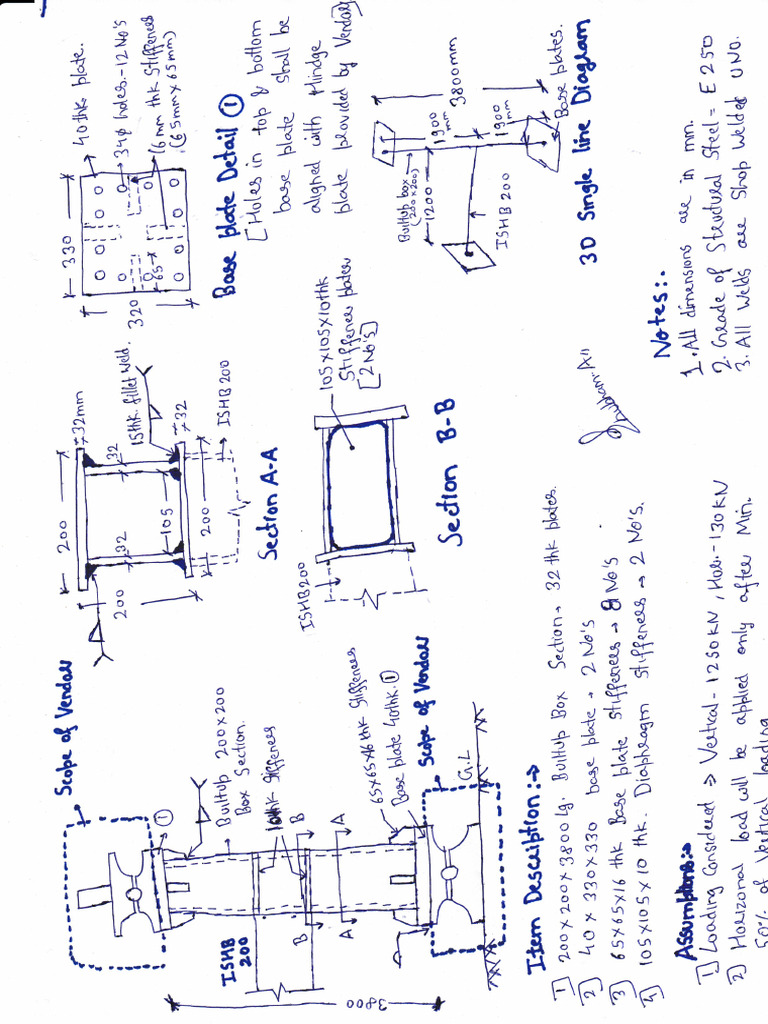 Scope of Vendor
①
Builtup 200x200
Box Section.
10thk Stiffeners
B
B
A
A
ISHB
200
3800
65x65x16 thk Stiffeners
Base plate 40thk. ①
Scope of Vendor
G.L
200
32mm
32
32
15thk. fillet weld.
32
105
200
200
ISHB 200
Section A-A
ISHB200
105x105x10thk
Stiffeners plates
[2 No's]
Section B-B
330
40thk plate.
34φ holes.-12No's
16mm thk Stiffeners
(65mm x 65mm)
65
320
Base plate Detail ①
[Holes in top & bottom
base plate shall be
aligned with Hindge
plate provided by Vendor]
3800mm
1900
mm
1900
mm
Builtup box
(200x200)
1200
ISHB 200
Base plates.
3D Single line Diagram
Item Description:→
1] 200x200x3800 lg. Builtup Box Section→ 32 thk plates.
2] 40 x 330x330 base plate → 2 No's
3] 65x65x16 thk Base plate stiffeners → 8 No's
4] 105x105x10 thk. Diaphragm stiffeners → 2 No's.
Notes:-
1. All dimensions are in mm.
2. Grade of Structural Steel = E 250
3. All Welds are Shop Welded UNO.
Assumptions:→
1] Loading Considered → Vertical - 1250KN, Hor. - 130KN
2] Horizonal load will be applied only after Min.
50% of Vertical loading